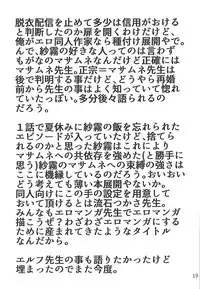 脱衣配信を止めて多少は信用がおける
と判断したのか扉を開くわけだけど、
俺がエロ同人作家なら種付け展開やで。
んで、紗霧の好きな人ってのは言わず
もがなのマサムネなんだけど正確には
マサムネ先生。正宗＝マサムネ先生は
後で判明する事だけど、どうやら再婚
前から先生の事はよく知ってて惚れて
いたっぽい。多分後々語られるのだ
ろう。
1話で夏休みに紗霧の飯を忘れられた
エピソードが入っていたけど、捨てら
れるのかと思った紗霧はこの事によっ
てマサムネへの共依存を強めた(と勝手に
思う)紗霧のマサムネへの束縛の強さは
ここに機縁しているのだろう。おいおい
どう考えても薄い本展開やないか。
同人的にもこの手の設定を用意して
おいて頂けるとは流石つかさ先生。
みんなもエロマンガ先生でエロマンガ
描こうぜ？わざわざエロマンガにする
ために産まれてきたようなタイトル
なんだから。
エルフ先生の事も語りたかったけど
埋まったのでまた今度。
19